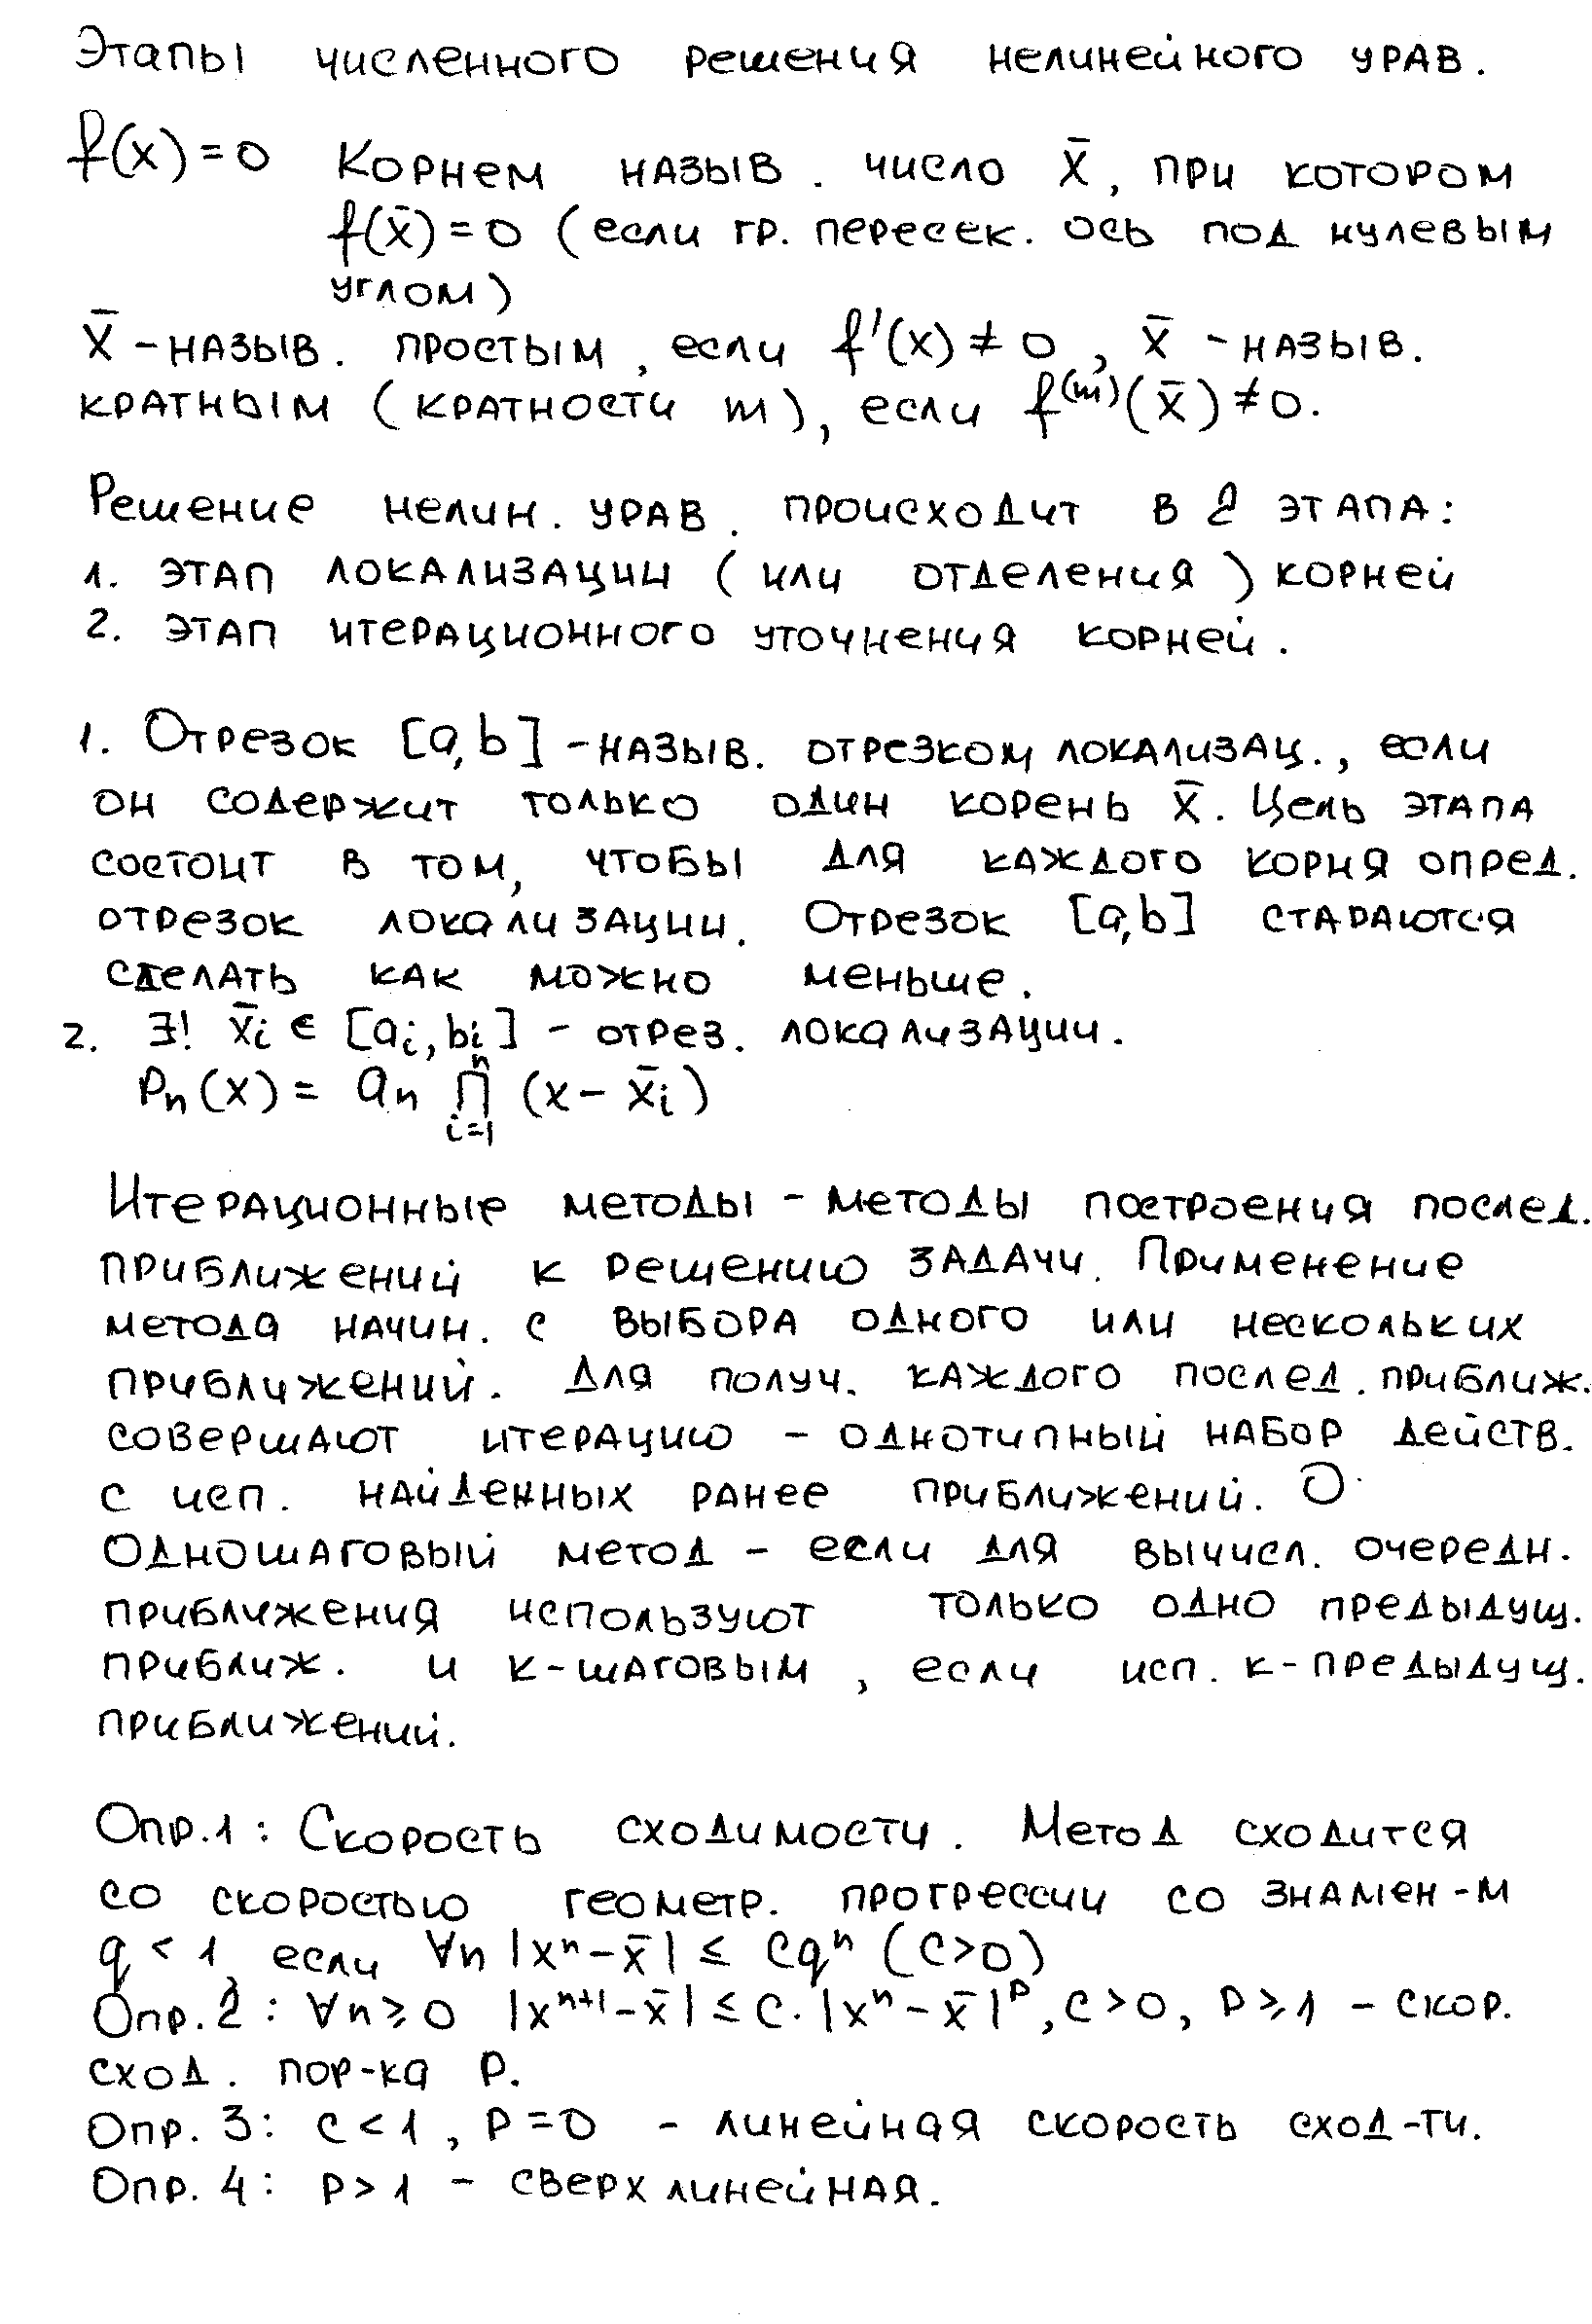 Этапы численного решения нелинейного урав.
f(x)=0 Корнем назыв. число x̄, при котором
f(x̄)=0 (если гр. пересек. ось под нулевым
углом)
x̄ - назыв. простым, если f'(x)≠0, x̄ - назыв.
кратным (кратности m), если f⁽ᵐ⁾(x̄)≠0.
Решение нелин. урав. происходит в 2 этапа:
1. этап локализации (или отделения) корней
2. этап итерационного уточнения корней.
1. Отрезок [a,b] - назыв. отрезком локализац., если
он содержит только один корень x̄. Цель этапа
состоит в том, чтобы для каждого корня опред.
отрезок локализации. Отрезок [a,b] стараются
сделать как можно меньше.
2. ∃! x̄i ∈ [ai, bi] - отрез. локализации.
Pn(x) = an ∏ⁿi=1 (x - x̄i)
Итерационные методы - методы построения послед.
приближений к решению задачи. Применение
метода начин. с выбора одного или нескольких
приближений. Для получ. каждого послед. приближ.
совершают итерацию - однотипный набор действ.
с исп. найденных ранее приближений. О
Одношаговый метод - если для вычисл. очередн.
приближения используют только одно предыдущ.
приближ. и к-шаговым, если исп. к-предыдущ.
приближений.
Опр.1: Скорость сходимости. Метод сходится
со скоростью геометр. прогрессии со знамен-м
q < 1 если ∀n |xⁿ - x̄| ≤ cqⁿ (c>0)
Опр.2: ∀n ≥ 0 |xⁿ⁺¹ - x̄| ≤ c·|xⁿ - x̄|ᵖ, c>0, p≥1 - скор.
сход. пор-ка p.
Опр. 3: c<1, p=0 - линейная скорость сход-ти.
Опр. 4: p>1 - сверхлинейная.